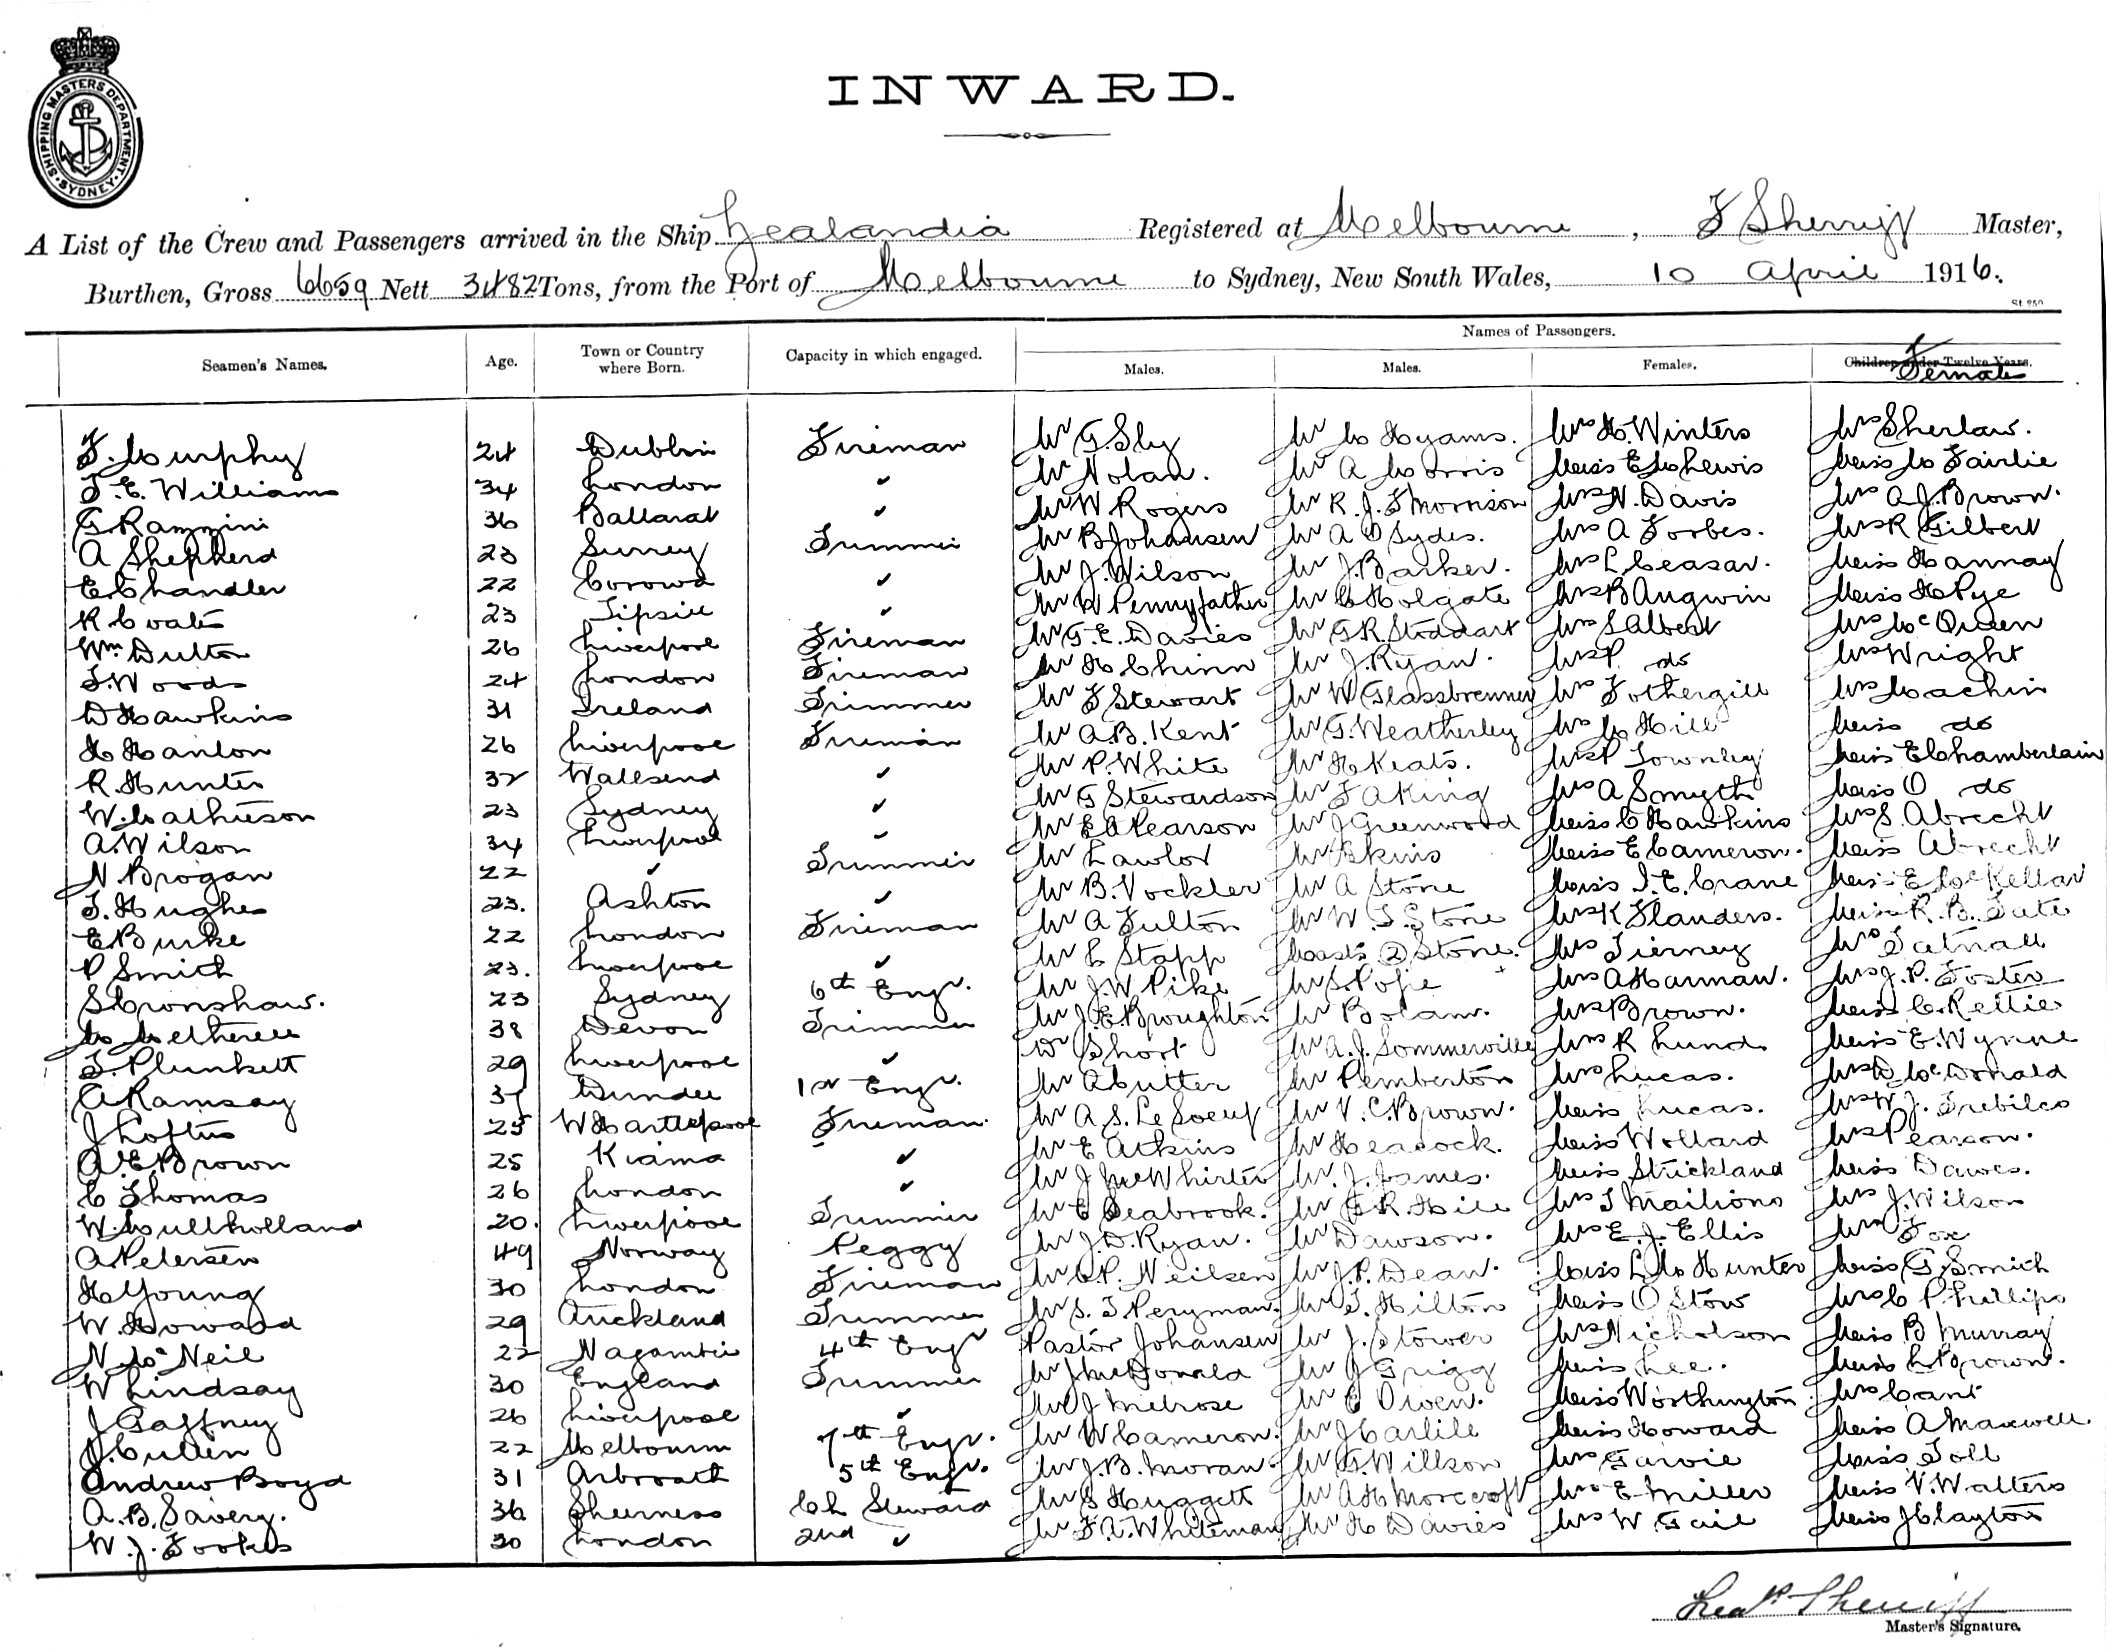 SHIPPING MASTERS DEPARTMENT. SYDNEY.
INWARD.
A List of the Crew and Passengers arrived in the Ship Zealandia Registered at Melbourne, F Sherriff Master,
Burthen, Gross 6659 Nett 3482 Tons, from the Port of Melbourne to Sydney, New South Wales, 10 April 1916.
St 250
Names of Passengers.
Seamen's Names. Age. Town or Country where Born. Capacity in which engaged. Males. Males. Females. Children under Twelve Years. Female
F. Murphy 24 Dublin Fireman Mr G. Sly Mr M Hyams. Mrs H. Winters Mrs Sherlaw.
T. E. Williams 34 London " Mr Nolan. Mr A Morris Miss E M Lewis Miss M Fairlie
G. Rammini 36 Ballarat " Mr W Rogers Mr R. J. F Morrison Mrs N. Davis Mrs A. J. Brown.
A Shepherd 23 Surrey Trimmer Mr B Johansen Mr A O Sydes. Mrs A Forbes. Mrs R Gilbert
E Chandler 22 Corowa " Mr J. Wilson Mr J. Barker. Mrs L Ceasar. Miss Hannay
R Coates 23 " Mr W Pennyfather Mr C Holgate Mrs B Angwin Miss H Pye
Wm Dutton 26 Liverpool Fireman Mr G. E. Davies Mr G R Stoddart Mrs S Albert Mrs McQueen
T. Woods 24 London Fireman Mr H Chinn Mr J. Ryan. Mrs P. do Mrs Wright
D Hawkins 31 Ireland Trimmer Mr F Stewart Mr W Glassbrenner Mrs Fothergill Mrs Machin
H Hanlon 26 Liverpool Fireman Mr A. B. Kent Mr G. Weatherley Mrs M Hill Miss do
R. Hunter 32 Wallsend " Mr P. White Mr H Keats. Mrs P Townley Miss E Chamberlain
W. Mathieson 23 Sydney " Mr G Stewardson Mr F A King Mrs A Smyth Miss O do
A. Wilson 34 Liverpool " Mr E C Pearson Mr J Greenwood Miss C Hawkins Mrs S. Abrecht
N. Brogan 22 " Trimmer Mr Lawlor Mr Ekins Miss E Cameron. Miss Abrecht
T. Hughes 23. Ashton " Mr B. Vockler Mr A Stone Miss I. E. Crane Miss E McKellar
E Burke 22 London Fireman Mr A Fulton Mr W. T. Stone Mrs K Flanders. Miss R. B. Tate
P Smith 23. Liverpool " Mr L Stapp Masts (2) Stone. Mrs Tierney Mrs Tatnall
S Cronshaw. 23 Sydney 6th Engr. Mr J. W Pike Mr S Pope Mrs A Harman. Mrs J. P. Foster
M Metherell 38 Devon Trimmer Mr J. E. Broughton Mr Bolam. Mrs Brown. Miss C. Rettie
T. Plunkett 29 Liverpool " Dr Short Mr A. J. Sommerville Mrs R Lund Miss E. Wynne
A Ramsay 37 Dundee 1st Engr. Mr A Cutter Mr Pemberton Mrs Lucas. Mrs D McDonald
J Loftus 25 W Hartlepool Fireman. Mr A. S. Le Soeuf Mr V. C. Brown. Miss Lucas. Mrs W. J. Trebilco
A. E. Brown 25 Kiama " Mr E Atkins Mr Heacock. Miss Wollard Mrs Pearson.
C Thomas 26 London " Mr J McWhirter Mr. J. James. Miss Strickland Miss Dawes.
W. Mullholland 20. Liverpool Trimmer Mr C Seabrook. Mr G R. Hill Mrs T Mailiono Mrs J. Wilson
A Petersen 49 Norway Peggy Mr J. D. Ryan. Mr Dawson. Mrs E. J. Ellis Mrs Fox
H Young 30 London Fireman Mr C P. Neilsen Mr J. P. Dean. Miss L M Hunter Miss G. Smith
W. Howard 29 Auckland Trimmer Mr S. T Peryman. Mr T. Hilton Miss O Stow Mrs C Phillips
N. McNeil 22 Nagambie 4th Engr Pastor Johansen Mr J. Stower Mrs Nicholson Miss B Murray
W Lindsay 30 England Trimmer Mr J McDonald Mr J Grigg Miss Lee. Miss L Brown.
J Gaffney 26 Liverpool " Mr J Melrose Mr C Owen. Miss Worthington. Mrs Cant
J. Cullen 22 Melbourne 7th Engr. Mr W Cameron. Mr J Carlile Miss Howard Miss A Maxwell
Andrew Boyd 31 Arbroath 5th Engr. Mr J. B. Moran. Mr G. Willson Mrs Garvie Miss Toll
A. B. Savery. 36 Sheerness Ch Steward Mr S Huggett Mr A H Morecroft Mrs E Miller Miss V. Walters
W. J. Fookes 30 London 2nd " Mr F. A. Whiteman Mr H Davies Mrs W. Gail Miss J Clayton
Fredk Sherriff
Master's Signature.